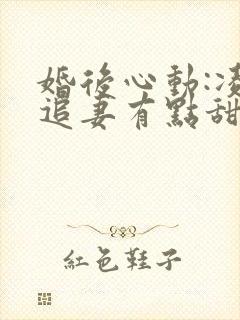 婚後心動:凌
追妻有點甜
紅色鞋子